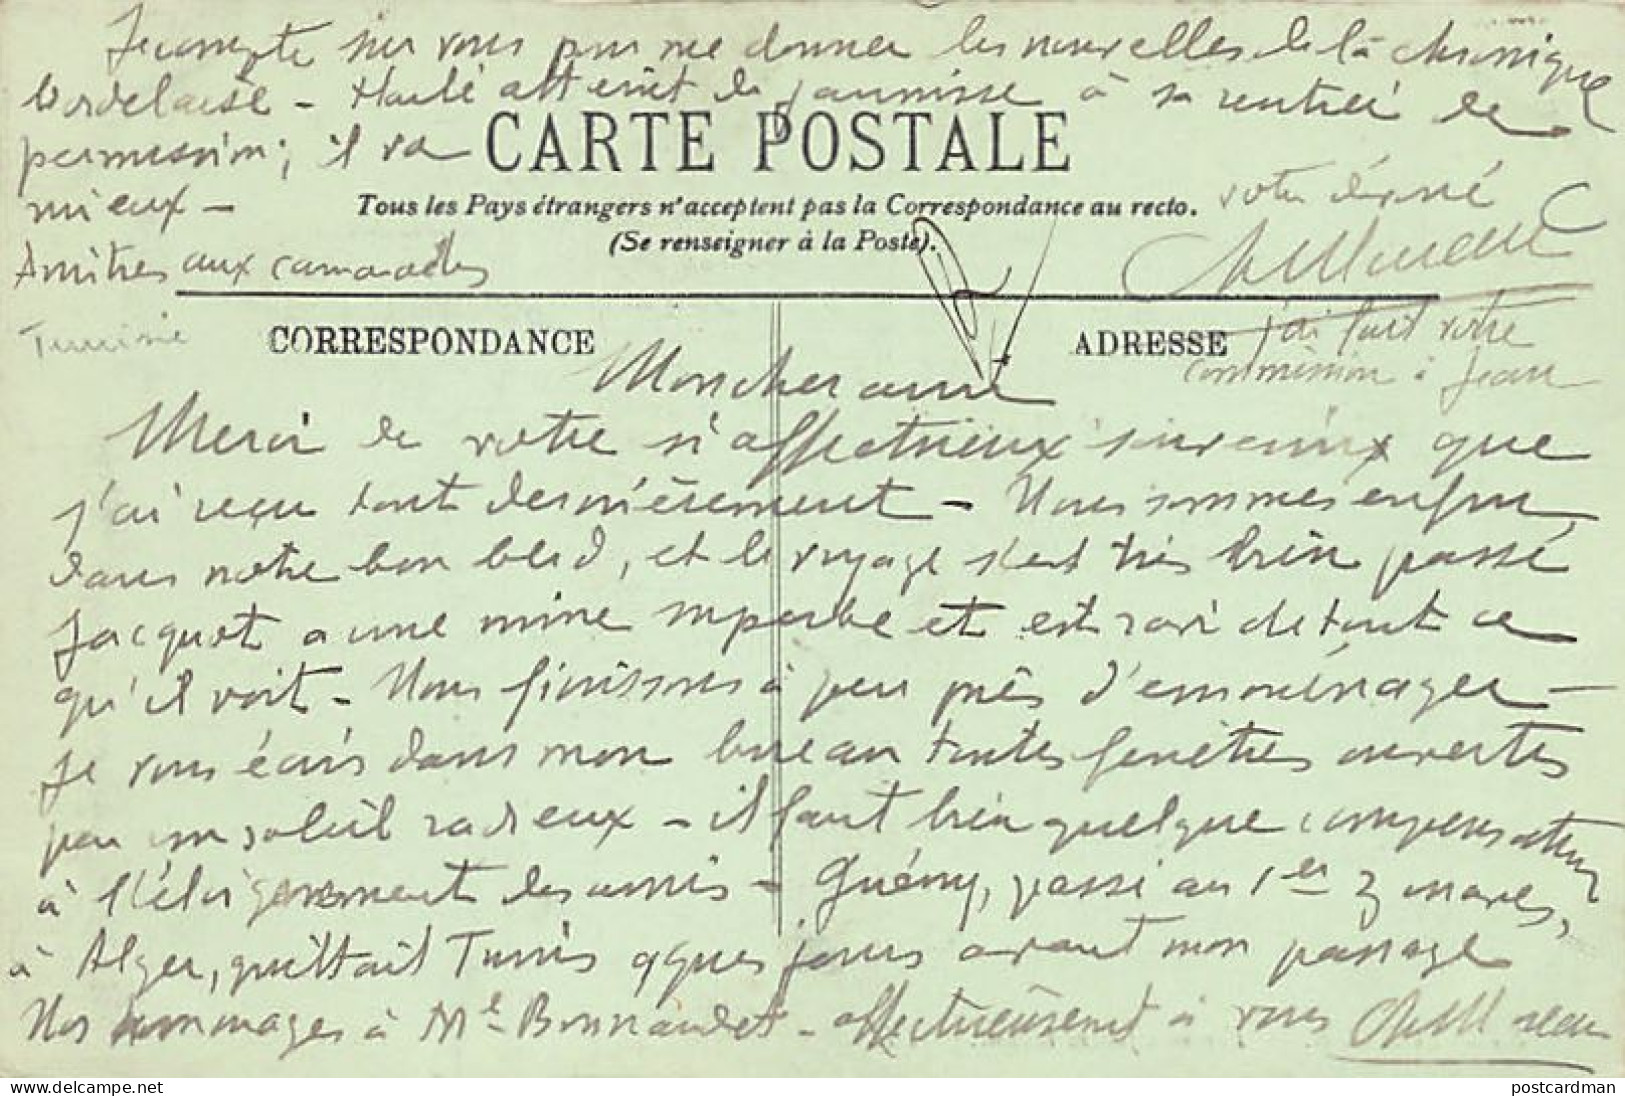 Je compte sur vous pour me donner les nouvelles de la chronique
bordelaise - atteint de jaunisse à sa rentrée de
permission; il va
mieux -
Amitiés aux camarades
CARTE POSTALE
Tous les Pays étrangers n'acceptent pas la Correspondance au recto.
(Se renseigner à la Poste).
votre dévoué
Tunisie
CORRESPONDANCE
ADRESSE
j'ai fait votre
commission à Jean
Mon cher ami
Merci de votre si affectueux souvenir que
j'ai reçu tout dernièrement - Nous sommes enfin
dans notre bon bled, et le voyage s'est très bien passé
Jacquot a une mine superbe et est ravi de tout ce
qu'il voit - Nous finissons à peu près d'emménager -
Je vous écris dans mon bureau toutes fenêtres ouvertes
par un soleil radieux - il faut bien quelque compensation
à l'éloignement des amis - Guémy, passé au 1er Zouaves,
à Alger, quittait Tunis qques jours avant mon passage
Nos hommages à Me Bonnaudet - affectueusement à vous
postcardman
www.delcampe.net